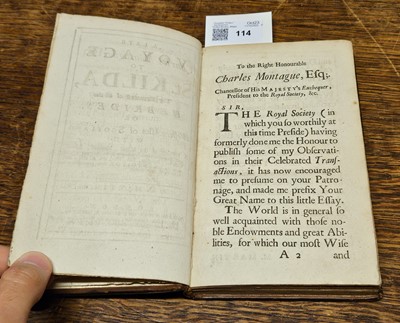 114
To the Right Honourable
Charles Montague, Esq;
Chancellor of His MAJESTY's Exchequer,
President to the Royal Society, &c.
SIR,
THE Royal Society (in
which you so worthily at
this time Preside) having
formerly done me the Honour to
publish some of my Observati-
ons in their Celebrated Trans-
actions, it has now encouraged
me to presume on your Patro-
nage, and made me prefix Your
Great Name to this little Essay.
The World is in general so
well acquainted with those no-
ble Endowments and great Abi-
lities, for which our most Wise
A 2 and